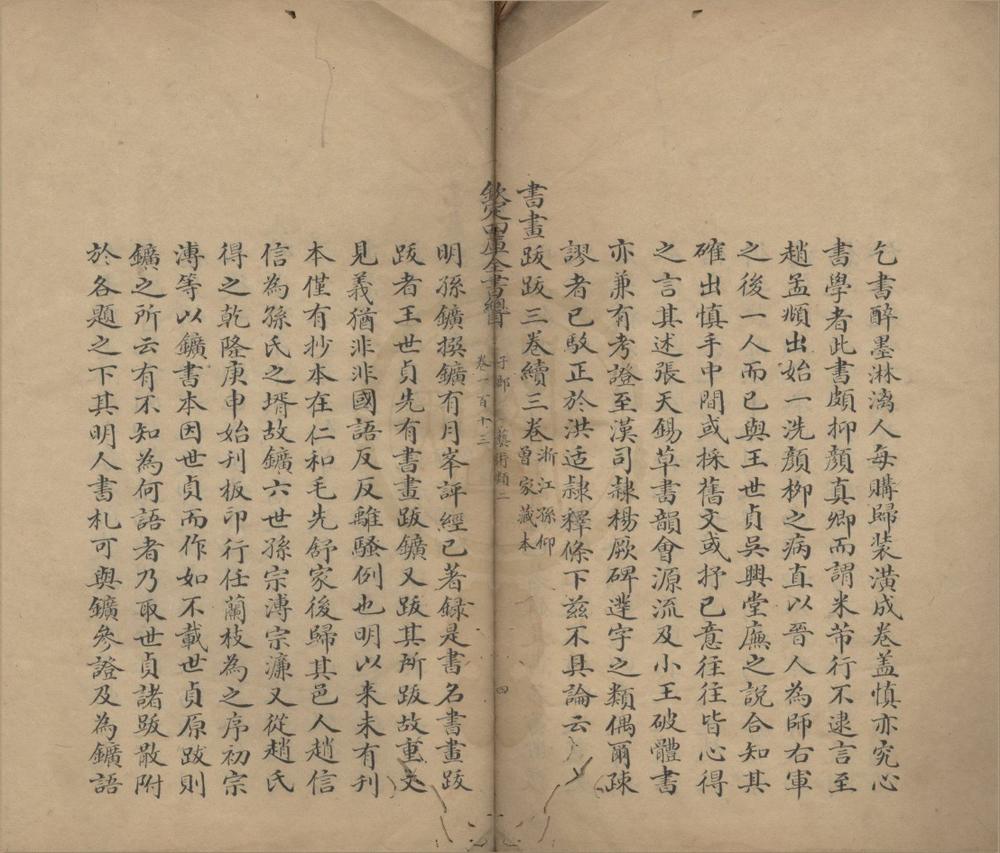 乞書醉墨淋漓人每購歸裝潢成卷盖慎亦究心
書學者此書頗抑顏真卿而謂米芾行不逮言至
趙孟頫出始一洗顏栁之病直以晉人為師右軍
之後一人而已與王世貞吳興堂廡之説合知其
確出慎手中間或採舊文或抒已意往往皆心得
之言其述張天錫草書韻會源流及小王破體書
亦兼有考證至漢司隸楊厥碑㐮字之類偶爾疎
謬者已駁正於洪适隷釋條下兹不具論云
書畫跋跋三卷續三卷浙江孫仰曽家藏本
欽定四庫全書總目
子部 藝術類二
卷一百十三
四
明孫鑛撰鑛有月峯評經已著録是書名書畫跋
跋者王世貞先有書畫跋鑛又跋其所跋故重文
見義猶非非國語反反離騷例也明以来未有刊
本僅有抄本在仁和毛先舒家後歸其邑人趙信
信為孫氏之壻故鑛六世孫宗溥宗濂又從趙氏
得之乾隆庚申始刊板印行任蘭枝為之序初宗
溥等以鑛書本因世貞而作如不載世貞原跋則
鑛之所云有不知為何語者乃取世貞諸跋散附
於各題之下其明人書札可與鑛參證及為鑛語